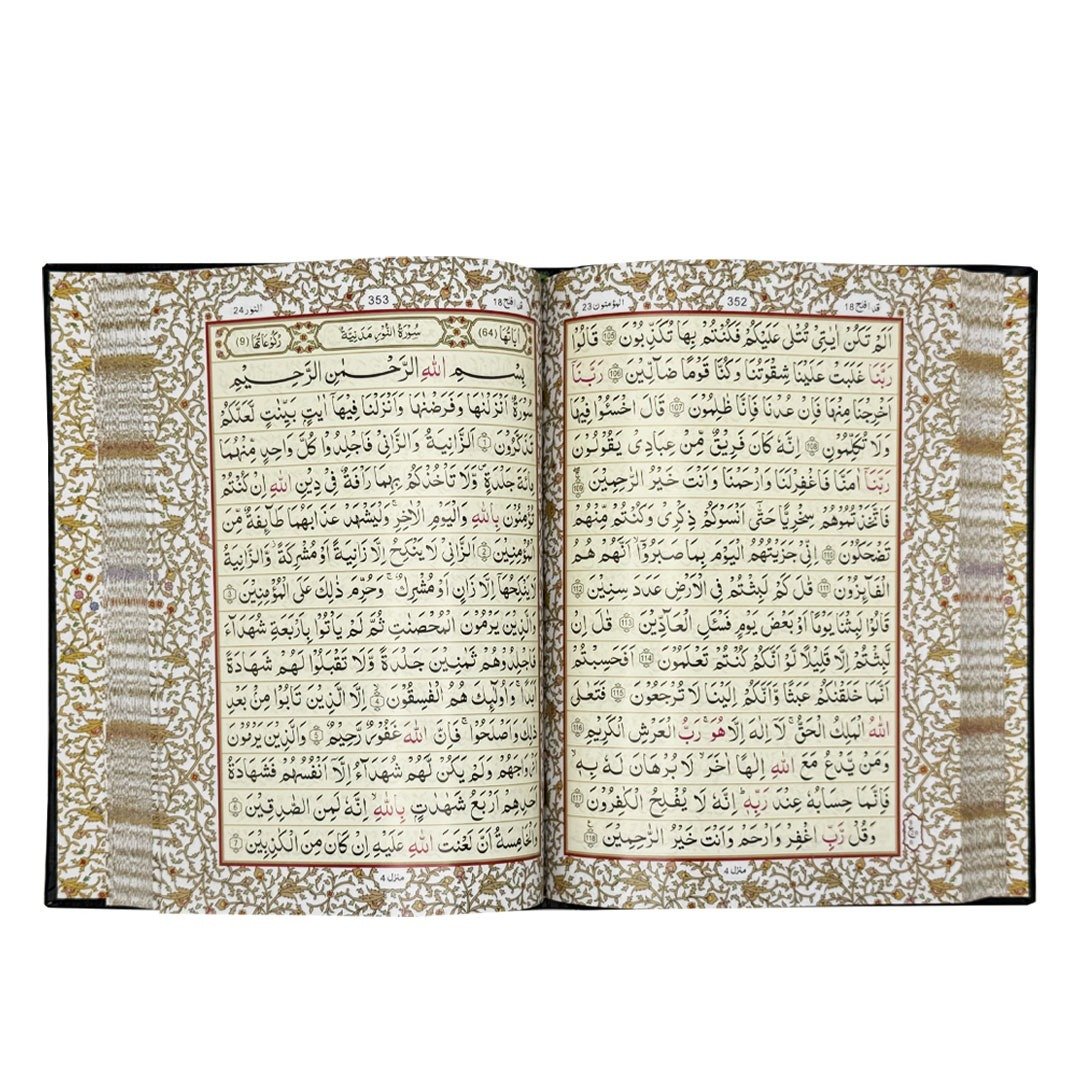 قد افلح 18
352
المؤمنون 23
اَلَمْ تَكُنْ اٰيٰتِىْ تُتْلٰى عَلَيْكُمْ فَكُنْتُمْ بِهَا تُكَذِّبُوْنَ 105 قَالُوْا
رَبَّنَا غَلَبَتْ عَلَيْنَا شِقْوَتُنَا وَكُنَّا قَوْمًا ضَآلِّيْنَ 106 رَبَّنَآ
اَخْرِجْنَا مِنْهَا فَاِنْ عُدْنَا فَاِنَّا ظٰلِمُوْنَ 107 قَالَ اخْسَئُوْا فِيْهَا
وَلَا تُكَلِّمُوْنِ 108 اِنَّهٗ كَانَ فَرِيْقٌ مِّنْ عِبَادِىْ يَقُوْلُوْنَ
رَبَّنَآ اٰمَنَّا فَاغْفِرْلَنَا وَارْحَمْنَا وَاَنْتَ خَيْرُ الرّٰحِمِيْنَ 109
فَاتَّخَذْتُمُوْهُمْ سِخْرِيًّا حَتّٰٓى اَنْسَوْكُمْ ذِكْرِىْ وَكُنْتُمْ مِّنْهُمْ
تَضْحَكُوْنَ 110 اِنِّىْ جَزَيْتُهُمُ الْيَوْمَ بِمَا صَبَرُوْٓا اَنَّهُمْ هُمُ
الْفَآئِزُوْنَ 111 قٰلَ كَمْ لَبِثْتُمْ فِى الْاَرْضِ عَدَدَ سِنِيْنَ 112
قَالُوْا لَبِثْنَا يَوْمًا اَوْ بَعْضَ يَوْمٍ فَسْئَلِ الْعَآدِّيْنَ 113 قٰلَ اِنْ
لَّبِثْتُمْ اِلَّا قَلِيْلًا لَّوْ اَنَّكُمْ كُنْتُمْ تَعْلَمُوْنَ 114 اَفَحَسِبْتُمْ
اَنَّمَا خَلَقْنٰكُمْ عَبَثًا وَّاَنَّكُمْ اِلَيْنَا لَا تُرْجَعُوْنَ 115 فَتَعٰلَى
اللّٰهُ الْمَلِكُ الْحَقُّ لَآ اِلٰهَ اِلَّا هُوَ رَبُّ الْعَرْشِ الْكَرِيْمِ 116
وَمَنْ يَّدْعُ مَعَ اللّٰهِ اِلٰهًا اٰخَرَ لَا بُرْهَانَ لَهٗ بِهٖ
فَاِنَّمَا حِسَابُهٗ عِنْدَ رَبِّهٖ اِنَّهٗ لَا يُفْلِحُ الْكٰفِرُوْنَ 117
وَقُلْ رَّبِّ اغْفِرْ وَارْحَمْ وَاَنْتَ خَيْرُ الرّٰحِمِيْنَ 118
منزل 4
قد افلح 18
353
النور 24
اٰيَاتُهَا (64) سُوْرَةُ النُّوْرِ مَدَنِيَّةٌ رُكُوْعَاتُهَا (9)
بِسْمِ اللّٰهِ الرَّحْمٰنِ الرَّحِيْمِ
سُوْرَةٌ اَنْزَلْنٰهَا وَفَرَضْنٰهَا وَاَنْزَلْنَا فِيْهَآ اٰيٰتٍۢ بَيِّنٰتٍ لَّعَلَّكُمْ
تَذَكَّرُوْنَ 1 اَلزَّانِيَةُ وَالزَّانِىْ فَاجْلِدُوْا كُلَّ وَاحِدٍ مِّنْهُمَا
مِائَةَ جَلْدَةٍ وَّلَا تَاْخُذْكُمْ بِهِمَا رَاْفَةٌ فِىْ دِيْنِ اللّٰهِ اِنْ كُنْتُمْ
تُؤْمِنُوْنَ بِاللّٰهِ وَالْيَوْمِ الْاٰخِرِ وَلْيَشْهَدْ عَذَابَهُمَا طَآئِفَةٌ مِّنَ
الْمُؤْمِنِيْنَ 2 اَلزَّانِىْ لَا يَنْكِحُ اِلَّا زَانِيَةً اَوْ مُشْرِكَةً وَّالزَّانِيَةُ
لَا يَنْكِحُهَآ اِلَّا زَانٍ اَوْ مُشْرِكٌ وَحُرِّمَ ذٰلِكَ عَلَى الْمُؤْمِنِيْنَ 3
وَالَّذِيْنَ يَرْمُوْنَ الْمُحْصَنٰتِ ثُمَّ لَمْ يَاْتُوْا بِاَرْبَعَةِ شُهَدَآءَ
فَاجْلِدُوْهُمْ ثَمٰنِيْنَ جَلْدَةً وَّلَا تَقْبَلُوْا لَهُمْ شَهَادَةً
اَبَدًا وَاُولٰٓئِكَ هُمُ الْفٰسِقُوْنَ 4 اِلَّا الَّذِيْنَ تَابُوْا مِنْۢ بَعْدِ
ذٰلِكَ وَاَصْلَحُوْا فَاِنَّ اللّٰهَ غَفُوْرٌ رَّحِيْمٌ 5 وَالَّذِيْنَ يَرْمُوْنَ
اَزْوَاجَهُمْ وَلَمْ يَكُنْ لَّهُمْ شُهَدَآءُ اِلَّآ اَنْفُسُهُمْ فَشَهَادَةُ
اَحَدِهِمْ اَرْبَعُ شَهٰدٰتٍۢ بِاللّٰهِ اِنَّهٗ لَمِنَ الصّٰدِقِيْنَ 6
وَالْخَامِسَةُ اَنَّ لَعْنَتَ اللّٰهِ عَلَيْهِ اِنْ كَانَ مِنَ الْكٰذِبِيْنَ 7
منزل 4